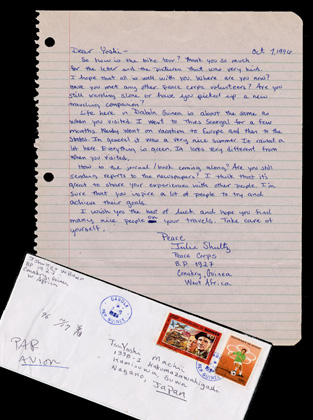 Oct 7, 1996
Dear Yoshi -
So how is the bike tour? Thank you so much
for the letter and the pictures that was very kind.
I hope that all is well with you. Where are you now?
Have you met any other peace corps volunteers? Are you
still working alone or have you picked up a new
traveling companion?
Life here in Dabola Guinea is about the same as
when you visited. I went to Thies Senegal for a few
months. Mandy went on vacation to Europe and then to the
States. In general it was a very nice summer. It rained a
lot here. Everything is green. It looks very different from
when you visited.
How is the journal / book coming along? Are you still
sending reports to the newspapers? I think that it's
great to share your experiences with other people. I'm
sure that you inspire a lot of people to try and
achieve their goals.
I wish you the best of luck and hope you find
many nice people on your travels. Take care of
yourself.
Peace,
Julie Shultz
Peace Corps
B.P. 1927
Conakry, Guinea
West Africa
J Shultz
BP 1927
Conakry Guinea
W. Africa
DABOLA
GUINEE
PAR
AVION
Tsuyoshi Machii
Nagano, Japan